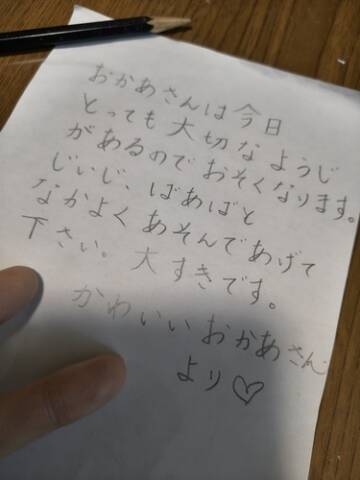 おかあさんは今日
とっても大切なようじ
があるのでおそくなります。
じいじ、ばあばと
なかよくあそんであげて
下さい。大すきです。
かわいいおかあさん
より♡